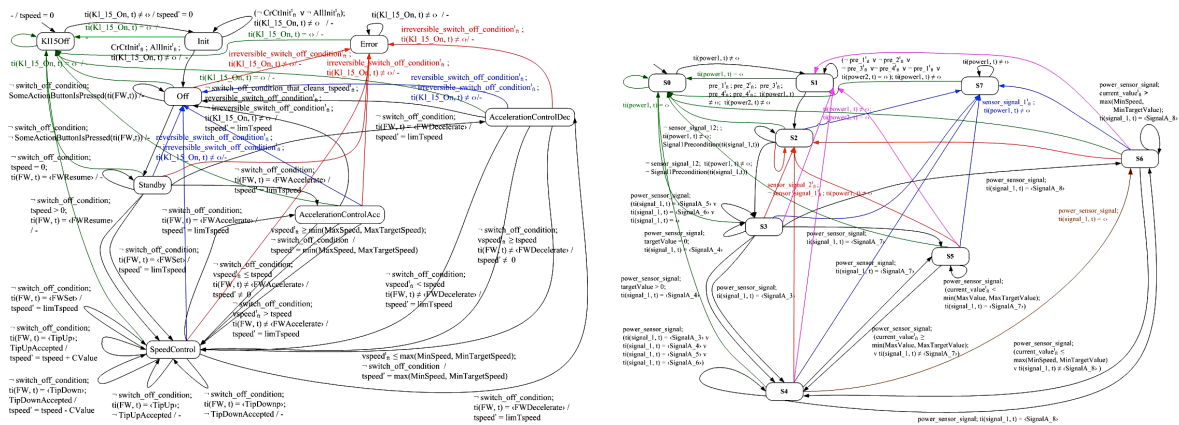 - / tspeed = 0
ti(Kl_15_On, t) ≠ ‹› / tspeed' = 0
ti(Kl_15_On, t) = ‹› / -
(¬ CrCtInit'ₙ ∨ ¬ AllInit'ₙ);
ti(Kl_15_On, t) ≠ ‹› / -
ti(Kl_15_On, t) = ‹› / -
Kl15Off
Init
Error
CrCtInit'ₙ ; AllInit'ₙ ;
ti(Kl_15_On, t) ≠ ‹› / -
irreversible_switch_off_condition'ₙ ;
ti(Kl_15_On, t) ≠ ‹›/-
ti(Kl_15_On, t) = ‹› / -
irreversible_switch_off_condition'ₙ ;
ti(Kl_15_On, t) ≠ ‹›/-
¬ switch_off_condition;
SomeActionButtonIsPressed(ti(FW,t)) / -
Off
¬ switch_off_condition_that_cleans_tspeed'ₙ ;
reversible_switch_off_condition'ₙ ;
¬ irreversible_switch_off_condition'ₙ ;
ti(Kl_15_On, t) ≠ ‹› /
tspeed' = limTspeed
reversible_switch_off_condition'ₙ ;
¬ irreversible_switch_off_condition'ₙ ;
ti(Kl_15_On, t) ≠ ‹›/-
AccelerationControlDec
¬ switch_off_condition;
¬ SomeActionButtonIsPressed(ti(FW,t)) / -
reversible_switch_off_condition'ₙ ;
¬ irreversible_switch_off_condition'ₙ ;
ti(Kl_15_On, t) ≠ ‹›/-
¬ switch_off_condition;
ti(FW, t) = ‹FWDecelerate› /
tspeed' = limTspeed
¬ switch_off_condition;
tspeed = 0;
ti(FW, t) = ‹FWResume› / -
Standby
¬ switch_off_condition;
ti(FW, t) = ‹FWAccelerate› /
tspeed' = limTspeed
¬ switch_off_condition;
tspeed > 0;
ti(FW, t) = ‹FWResume›
/ -
¬ switch_off_condition;
ti(FW, t) = ‹FWAccelerate› /
tspeed' = limTspeed
AccelerationControlAcc
vspeed'ₙ ≥ min(MaxSpeed, MaxTargetSpeed);
¬ switch_off_condition /
tspeed' = min(MaxSpeed, MaxTargetSpeed)
¬ switch_off_condition;
ti(FW, t) = ‹FWSet› /
tspeed' = limTspeed
¬ switch_off_condition;
vspeed'ₙ ≤ tspeed
ti(FW, t) ≠ ‹FWAccelerate› /
tspeed' ≠ 0
¬ switch_off_condition;
vspeed'ₙ ≥ tspeed
ti(FW, t) ≠ ‹FWDecelerate› /
tspeed' ≠ 0
¬ switch_off_condition;
vspeed'ₙ < tspeed
ti(FW, t) ≠ ‹FWDecelerate› /
tspeed' = limTspeed
¬ switch_off_condition;
vspeed'ₙ > tspeed
ti(FW, t) ≠ ‹FWAccelerate› /
tspeed' = limTspeed
¬ switch_off_condition;
ti(FW, t) = ‹FWSet› /
tspeed' = limTspeed
¬ switch_off_condition;
ti(FW, t) = ‹TipUp›;
TipUpAccepted /
tspeed' = tspeed + CValue
SpeedControl
vspeed'ₙ ≤ max(MinSpeed, MinTargetSpeed);
¬ switch_off_condition /
tspeed' = max(MinSpeed, MinTargetSpeed)
¬ switch_off_condition;
ti(FW, t) = ‹TipDown›;
TipDownAccepted /
tspeed' = tspeed - CValue
¬ switch_off_condition;
ti(FW, t) = ‹TipUp›;
¬ TipUpAccepted / -
¬ switch_off_condition;
ti(FW, t) = ‹TipDownp›;
¬ TipDownAccepted / -
¬ switch_off_condition;
ti(FW, t) = ‹FWDecelerate› /
tspeed' = limTspeed
ti(power1, t) ≠ ‹›
ti(power1, t) = ‹›
(¬ pre_1'ₙ ∨ ¬ pre_2'ₙ ∨
¬ pre_3'ₙ ∨ ¬ pre_4'ₙ ∨ ¬ pre_5'ₙ ∨
ti(power2, t) = ‹› ); ti(power1, t) ≠ ‹›
ti(power1, t) ≠ ‹›
S0
S1
S7
pre_1'ₙ ; pre_2'ₙ ; pre_3'ₙ ;
pre_4'ₙ ; pre_5'ₙ ; ti(power1, t)
≠ ‹›; ti(power2, t) ≠ ‹›
ti(power1, t) = ‹›
sensor_signal_1'ₙ ;
ti(power1, t) ≠ ‹›
power_sensor_signal;
current_value'ₙ >
max(MinSpeed,
MinTargetValue);
ti(signal_1, t) = ‹SignalA_8›
¬ sensor_signal_12; ;
ti(power1, t) ≠ ‹›;
Signal1Precondition(ti(signal_1,t))
S2
S6
¬ sensor_signal_12; ti(power1, t) ≠ ‹›;
¬ Signal1Precondition(ti(signal_1,t))
sensor_signal_2'ₙ ;
¬ sensor_signal_1'ₙ ; ti(power1, t) ≠ ‹›
power_sensor_signal;
ti(signal_1, t) = ‹SignalA_8›
power_sensor_signal;
(ti(signal_1, t) = ‹SignalA_5› ∨
ti(signal_1, t) = ‹SignalA_6› ∨
ti(signal_1, t) = ‹›
power_sensor_signal;
ti(signal_1, t) = ‹›
S3
power_sensor_signal;
targetValue = 0;
ti(signal_1, t) = ‹SignalA_4›
power_sensor_signal;
ti(signal_1, t) = ‹SignalA_7›
S5
power_sensor_signal;
ti(signal_1, t) = ‹SignalA_7›
power_sensor_signal;
targetValue > 0;
ti(signal_1, t) = ‹SignalA_4›
power_sensor_signal;
ti(signal_1, t) = ‹SignalA_3›
power_sensor_signal;
(current_value'ₙ <
min(MaxValue, MaxTargetValue);
ti(signal_1, t) = ‹SignalA_7›)
power_sensor_signal;
(ti(signal_1, t) = ‹SignalA_3› ∨
ti(signal_1, t) = ‹SignalA_4› ∨
ti(signal_1, t) = ‹SignalA_5› ∨
ti(signal_1, t) = ‹SignalA_6›)
power_sensor_signal;
(current_value'ₙ ≥
min(MaxValue, MaxTargetValue)
∨ ti(signal_1, t) ≠ ‹SignalA_7›)
power_sensor_signal;
(current_value'ₙ ≤
max(MinSpeed, MinTargetValue)
∨ ti(signal_1, t) ≠ ‹SignalA_8› )
S4
power_sensor_signal; ti(signal_1, t) = ‹SignalA_8›